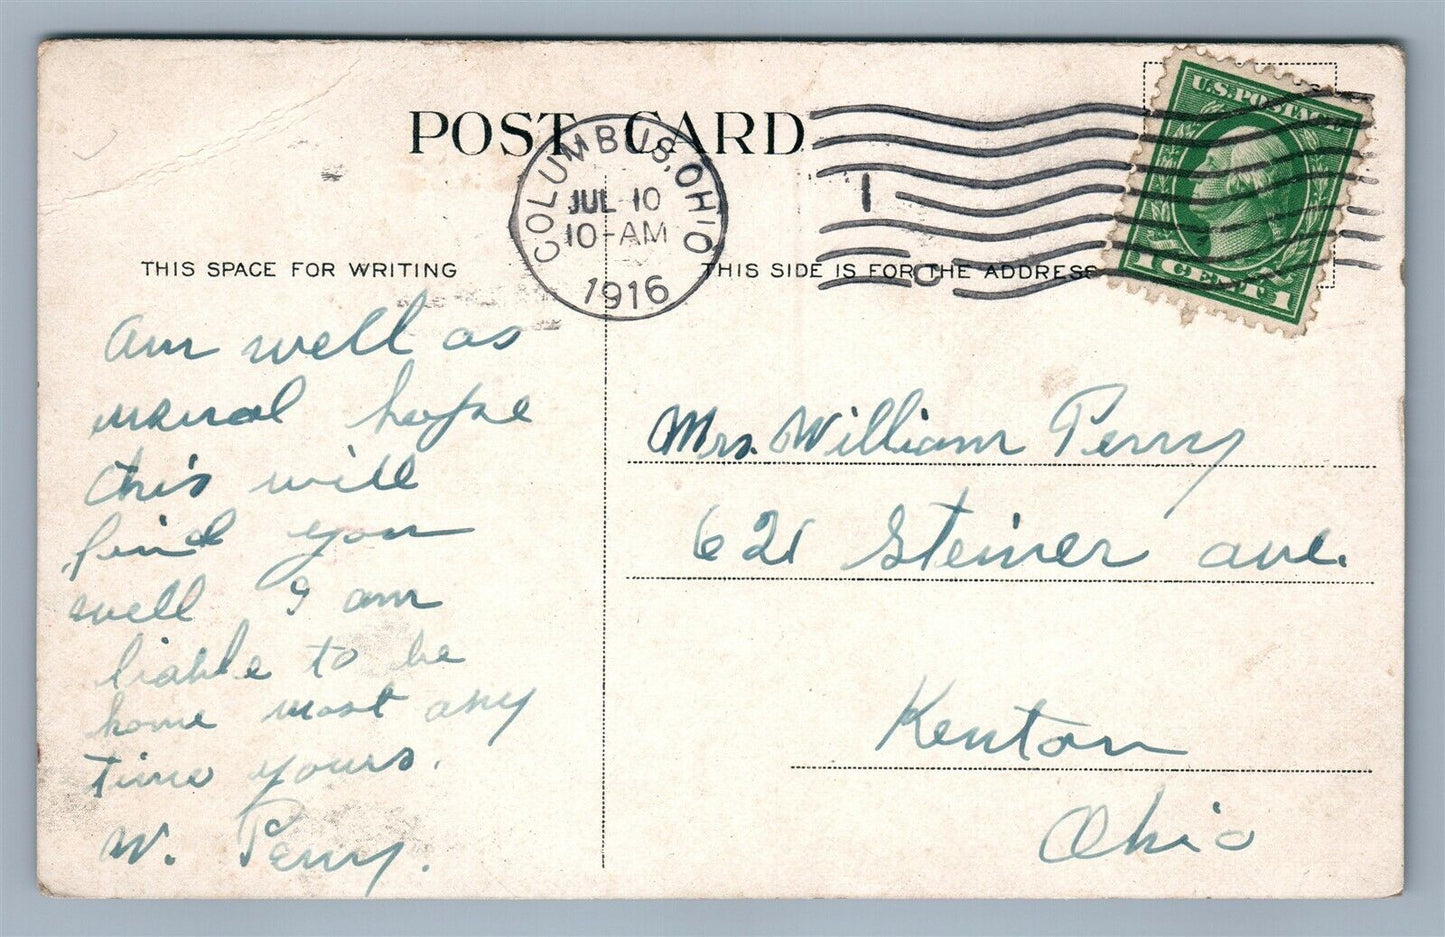 POST CARD
COLUMBUS, OHIO
JUL 10
10-AM
1916
1
U.S. POSTAGE
1 CENT 1
THIS SPACE FOR WRITING
THIS SIDE IS FOR THE ADDRESS
Am well as
usual hope
this will
find you
well I am
liable to be
home most any
time yours.
W. Perry.
Mrs. William Perry
621 Steiner ave.
Kenton
Ohio